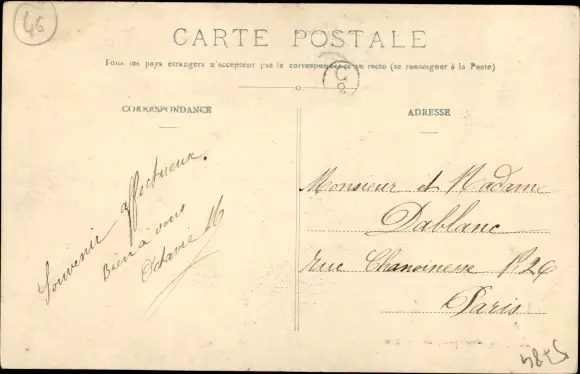 46
CARTE POSTALE
Tous les pays étrangers n'acceptent pas la correspondance au recto (se renseigner à la Poste)
C
8
CORRESPONDANCE
Souvenir affectueux.
Bien à vous
Octavie M
ADRESSE
Monsieur et Madame
Dablanc
rue Chanoinesse Nº 26
Paris